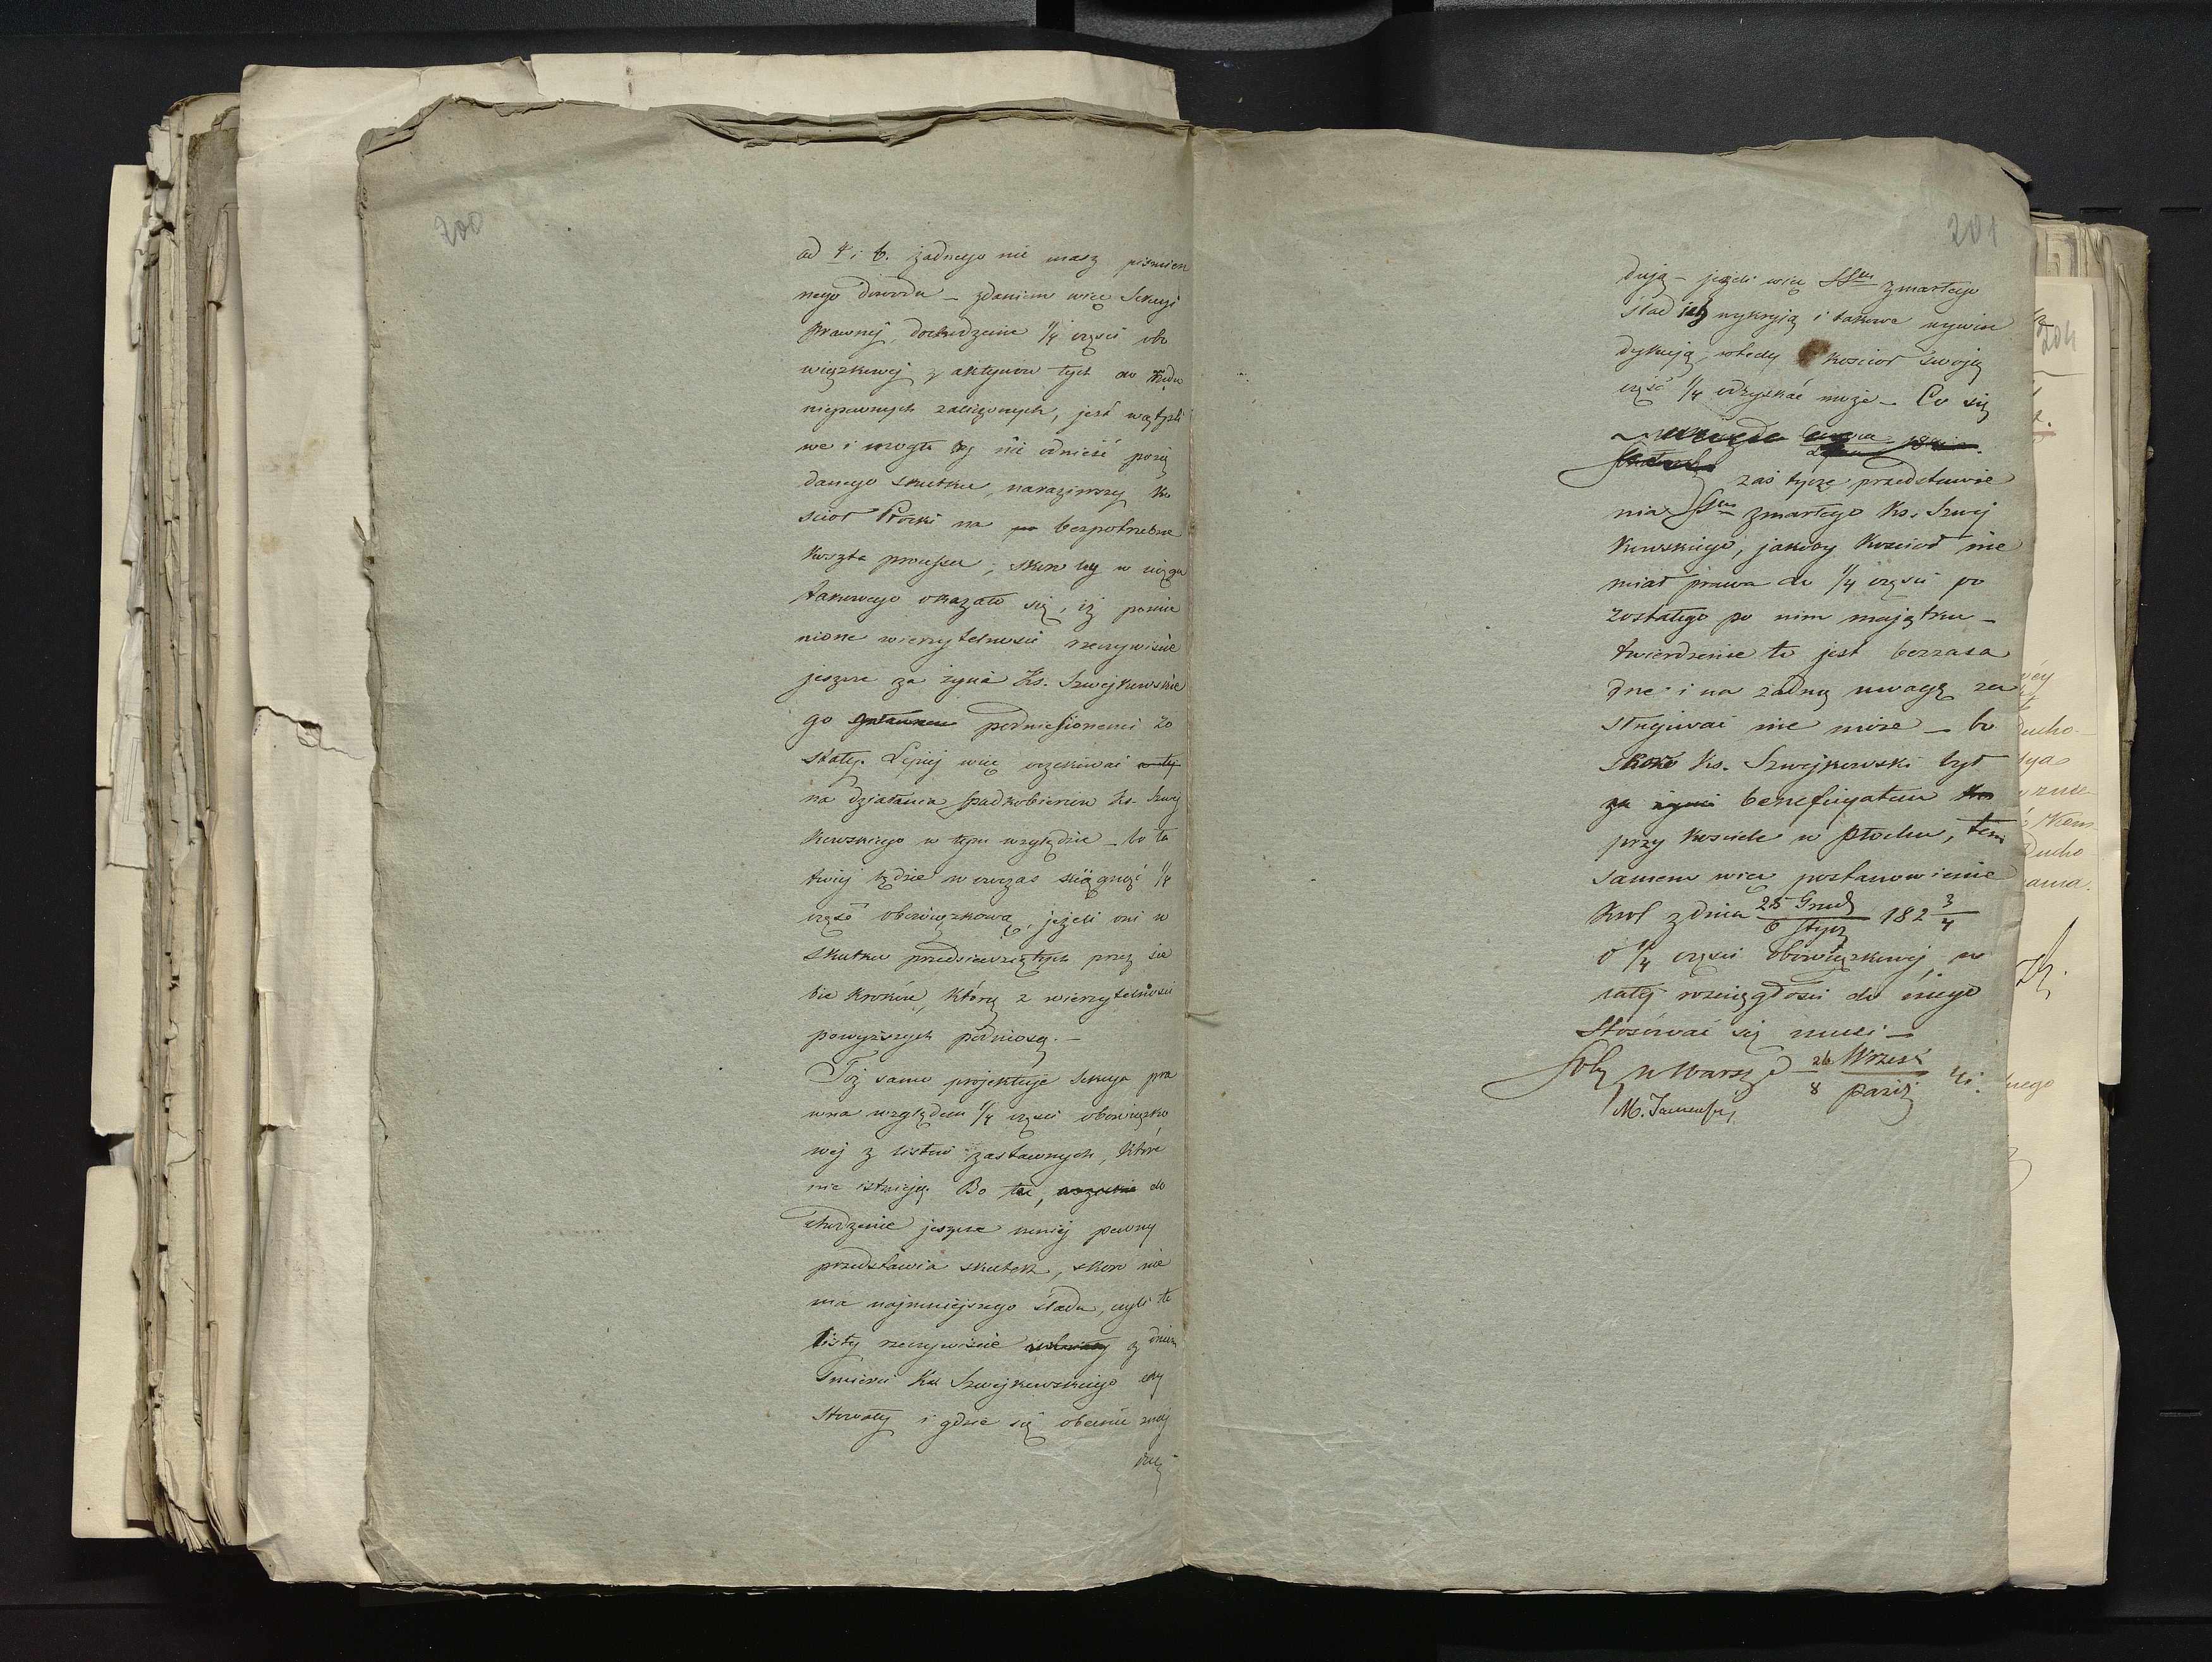 200
ad 4 i 6. żadnego nie masz piśmien
nego dowodu – zdaniem więc Sekcyi
Prawnej, dochodzenie 1/4 części obo
wiązkowej z aktywów tych do rzędu
niepewnych zaliczonych, jest wątpli
we i mogło by nie odnieść pożą
danego skutku, naraziwszy Ko
scioł Płocki na bezpotrzebne
koszta processu, skoro by w ciągu
takowego okazało się, iż pomie
nione wierzytelności rzeczywiście
jeszcze za życia Ks. Szwejkowskie
go podniesionemi zo
stały. Lepiej więc oczekiwać
na działania spadkobierców Ks. Szwej
kowskiego w tym względzie – bo ła
twiej będzie wówczas ściągnąć 1/4
część obowiązkową, jeżeli oni w
skutku przedsięwziętych przez sie
bie kroków, którą z wierzytelności
powyższych podniosą. –
Toż samo projektuje Sekcya pra
wna względem 1/4 części obowiązko
wej z listów zastawnych, które
nie istnieją. Bo tu, do
chodzenie jeszcze mniej pewny
przedstawia skutek, skoro nie
ma najmniejszego śladu, czyli te
listy rzeczywiście z dniem
śmierci Ks Szwejkowskiego egzy
stowały i gdzie się obecnie znaj
dują
201
dują – jeżeli więc SSrow zmarłego
ślad ich wykryją i takowe wywin
dykują, wtedy kościoł swoją
część 1/4 odzyskać może – Co się
zaś tycze przedstawie
nia SSrow zmarłego Ks. Szwej
kowskiego, jakoby Kościoł nie
miał prawa do 1/4 części po
zostałego po nim majątku –
twierdzenie to jest bezzasa
dne i na żadną uwagę za
sługiwać nie może – bo
skoro Ks. Szwejkowski był
za życia beneficyatem
przy kościele w Płocku, tem
samem więc postanowienie
Król z dnia 25 Grud/6 Stycz 182 3/4
o 1/4 części obowiązkowej w
całej rozciągłości do niego
stosować się musi –
w Warsz d 26 Wrześ/8 Paźdz 41.